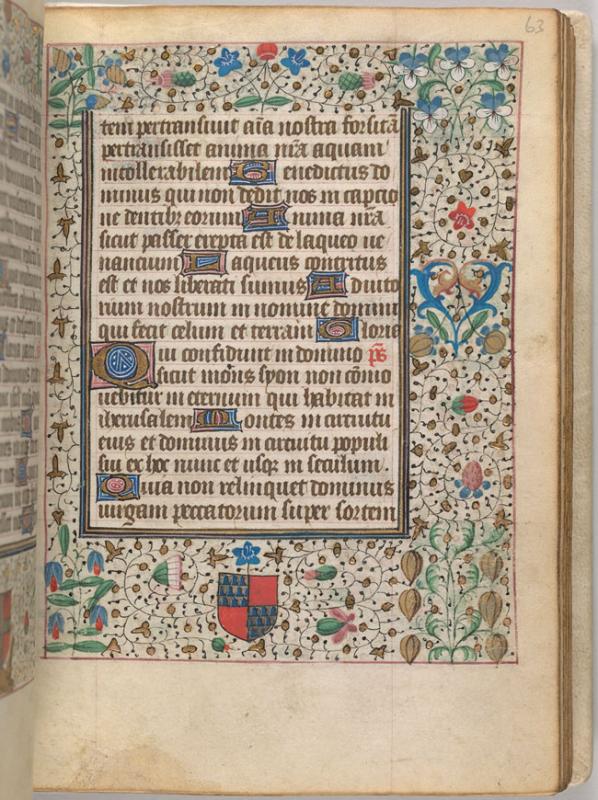 63
tem pertransiuit aīa nostra forsitā
pertransisset anima nr̄a aquam
intollerabilem Benedictus do
minus qui non dedit nos in captio
ne dentibꝫ eorum Anima nr̄a
sicut passer erepta est de laqueo ue
nancium Laqueus contritus
est et nos liberati sumus Adiuto
rium nostrum in nomine domini
qui fecit celum et terram Gloria
Qui confidunt in domino p̄s
sicut mons syon non cōmo
uebitur in eternum qui habitat in
iherusalem Montes in circuitu
eius et dominus in circuitu populi
sui ex hoc nunc et usqꝫ in seculum.
Quia non relinquet dominus
uirgam peccatorum super sortem